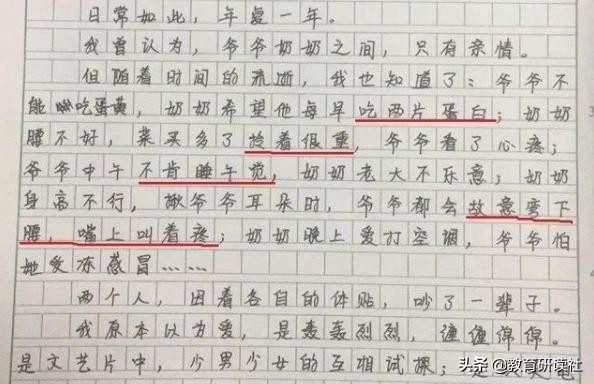 日常如此，年复一年。
我曾认为，爷爷奶奶之间，只有亲情。
但随着时间的流逝，我也知道了：爷爷不
能吃蛋黄，奶奶希望他每早吃两片蛋白；奶奶
腰不好，菜买多了拎着很重，爷爷看了心疼；
爷爷中午不肯睡午觉，奶奶老大不乐意；奶奶
身高不行，揪爷爷耳朵时，爷爷都会故意弯下
腰，嘴上叫着疼；奶奶晚上爱打空调，爷爷怕
她受冻感冒……
两个人，因着各自的体贴，吵了一辈子。
我原本以为爱，是轰轰烈烈，缠缠绵绵。
是文艺片中，少男少女的互相试探；是
头条 @教育研读社